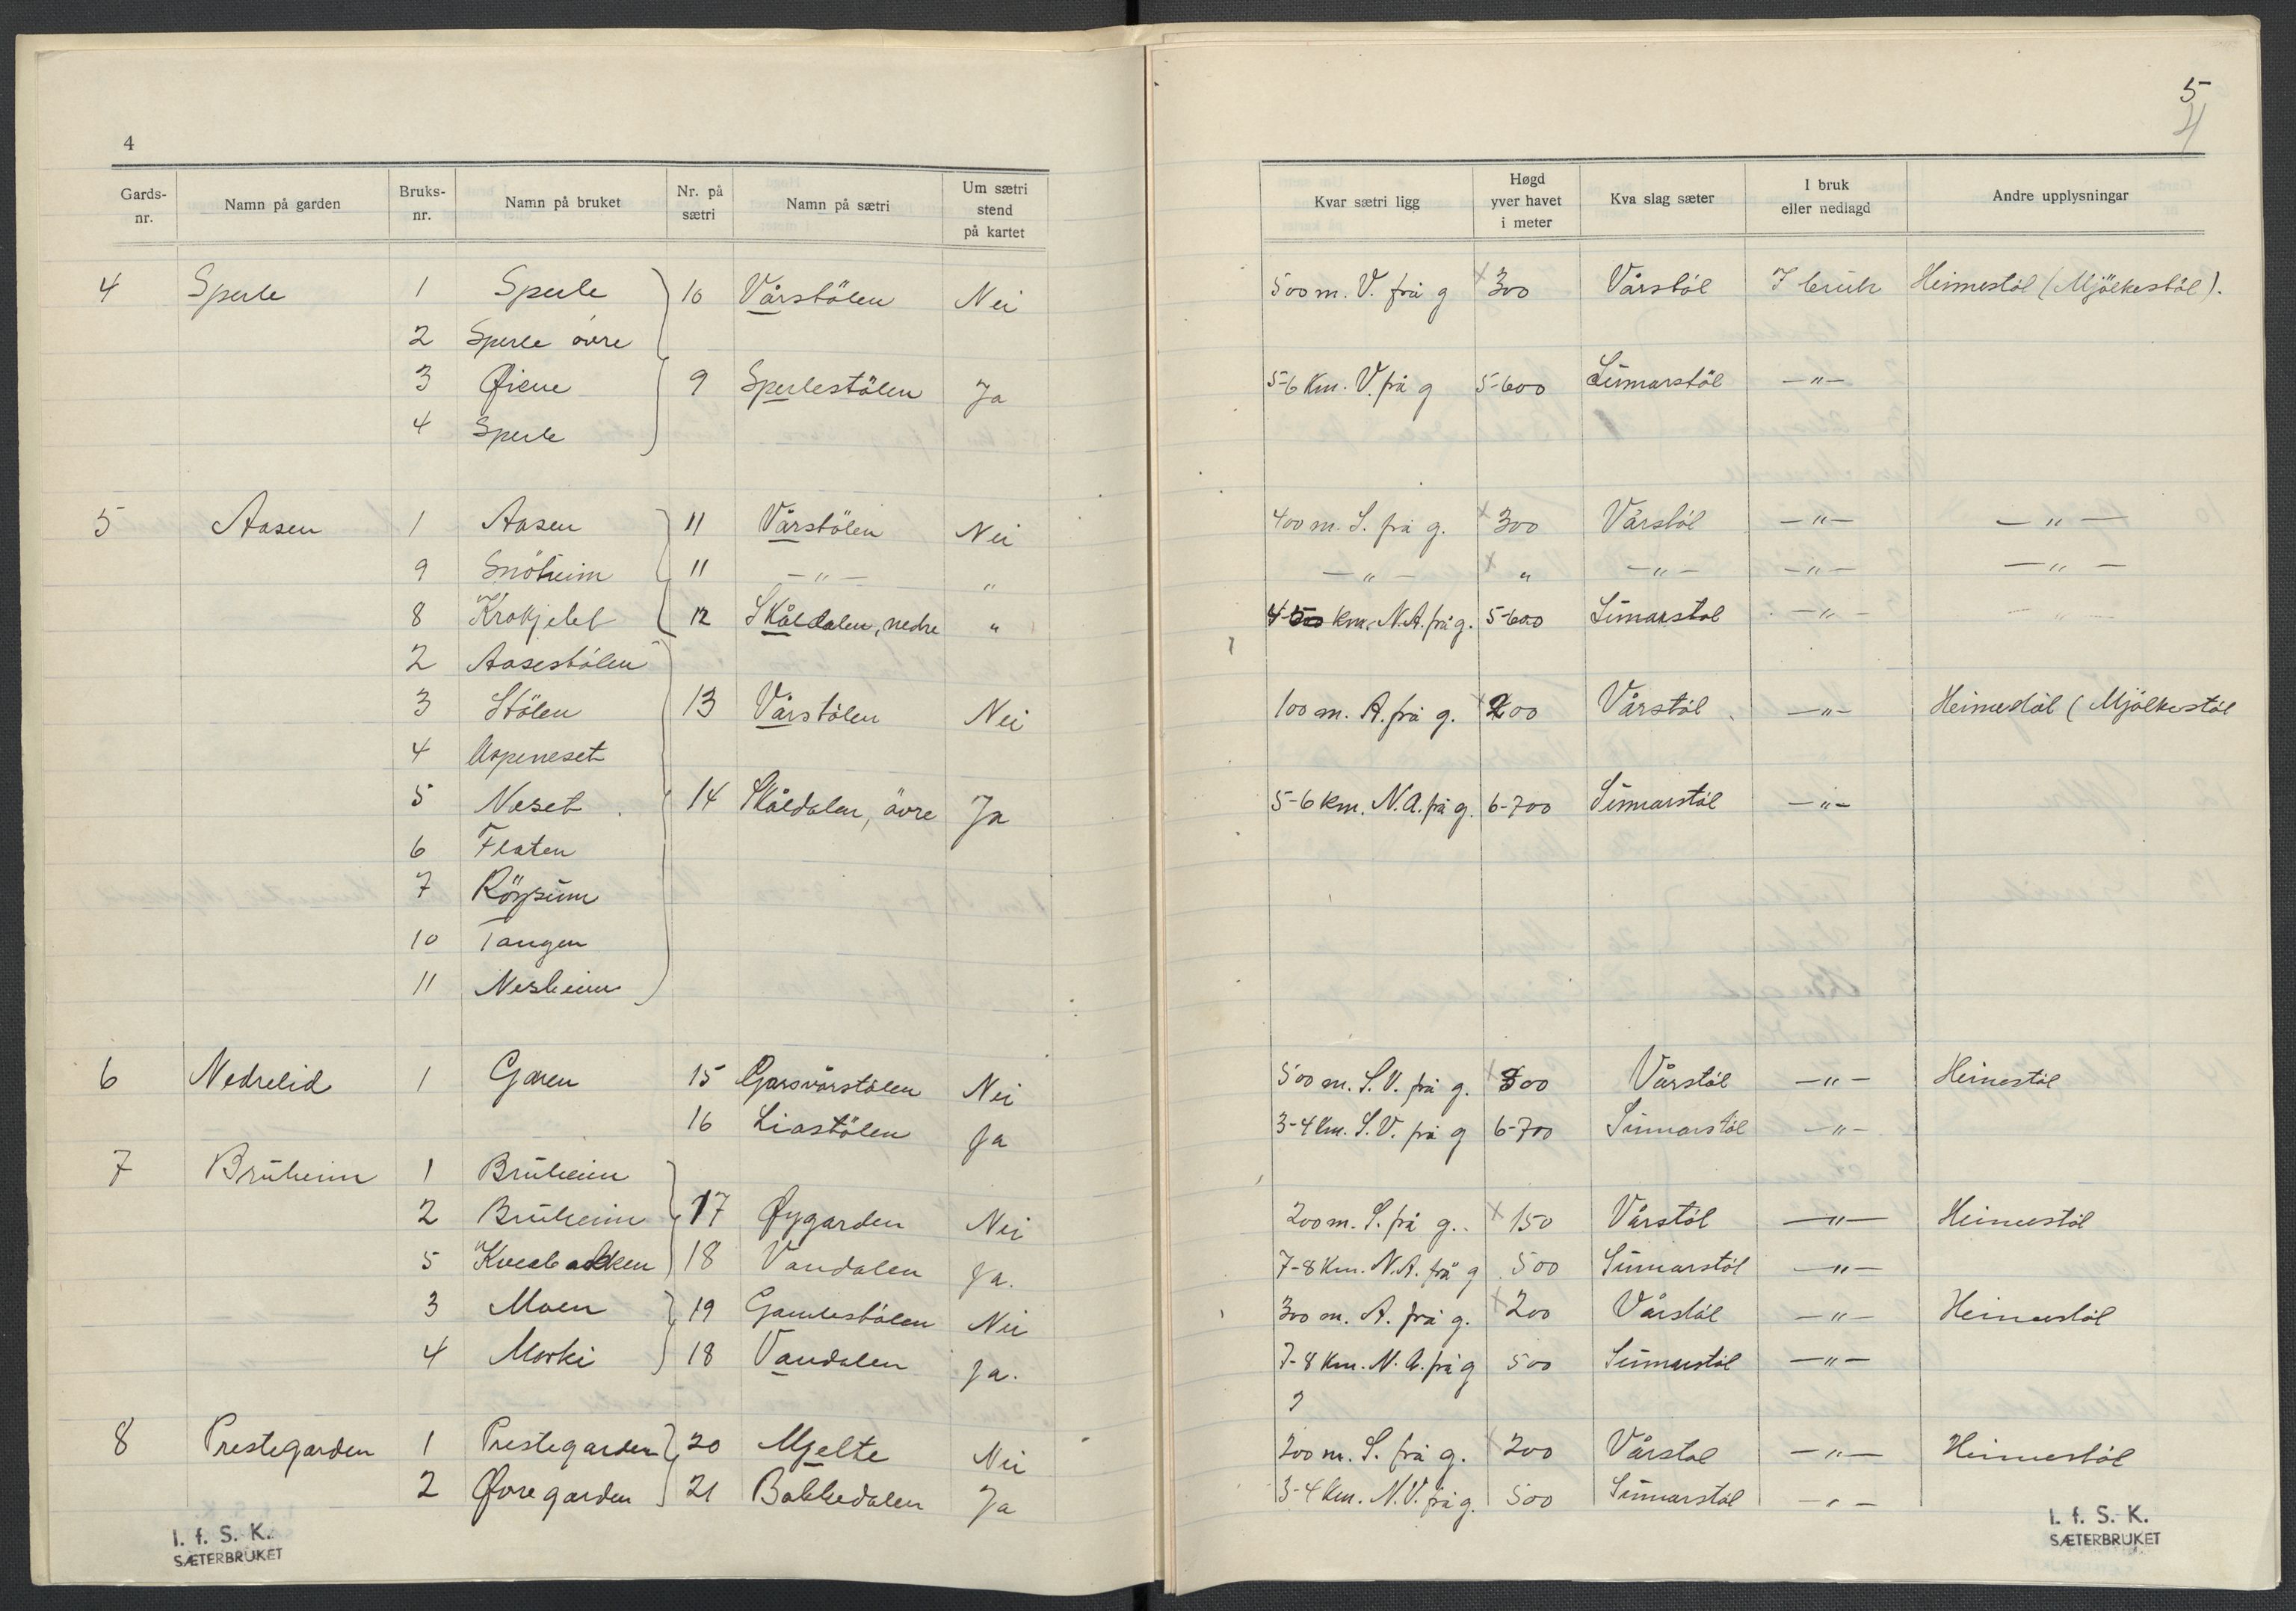 4
Gards-nr. | Namn på garden | Bruks-nr. | Namn på bruket | Nr. på sætri | Namn på sætri | Um sætri stend på kartet
4 Sperle 1 Sperle 10 Vårstölen Nei
2 Sperle övre
3 Øiene 9 Sperlestölen Ja
4 Sperle
5 Aasen 1 Aasen 11 Vårstölen Nei
9 Snöheim 11 — " — "
8 12 Skåldalen, nedre "
2 Aasestölen
3 Stölen 13 Vårstölen Nei
4 Aspeneset
5 Neset 14 Skåldalen, övre Ja
6 Flaten
7
10 Tangen
11 Nesheim
6 Nedrelid 1 Garen 15 Garsvårstölen Nei
16 Liastölen Ja
7 Bruheim 1 Bruheim
2 Bruheim 17 Øygarden Nei
5 Kvebakken 18 Vandalen Ja.
3 Moen 19 Gamlestölen Nei
4 Morki 18 Vandalen Ja.
8 Prestegarden 1 Prestegarden 20 Mjelte Nei
2 Øvregarden 21 Bakkedalen Ja
I. f. S. K.
SÆTERBRUKET
5
4
Kvar sætri ligg | Høgd yver havet i meter | Kva slag sæter | I bruk eller nedlagd | Andre upplysningar
500 m. V. frå g x 300 Vårstöl I bruk Heimestöl (Mjölkestöl).
5-6 km. V. frå g 5-600 Sumarstöl — " —
400 m. S. frå g. x 300 Vårstöl — " — — " —
— " — x " — " — — " — — " —
km. N.A. frå g. 5-600 Sumarstöl — " —
100 m. A. frå g. x 200 Vårstöl — " — Heimestöl (Mjölkestöl
5-6 km. N.A. frå g. 6-700 Sumarstöl — " —
500 m. S.V. frå g. x 300 Vårstöl — " — Heimestöl
3-4 km. S.V. frå g 6-700 Sumarstöl — " —
200 m. S. frå g. x 150 Vårstöl — " — Heimestöl
7-8 km. N.A. frå g 500 Sumarstöl — " —
300 m. A. frå g. x 200 Vårstöl — " — Heimestöl
7-8 km. N.A. frå g 500 Sumarstöl — " —
200 m. S. frå g. x 200 Vårstöl — " — Heimestöl
3-4 km. N.V. frå g. 500 Sumarstöl — " —
I. f. S. K.
SÆTERBRUKET